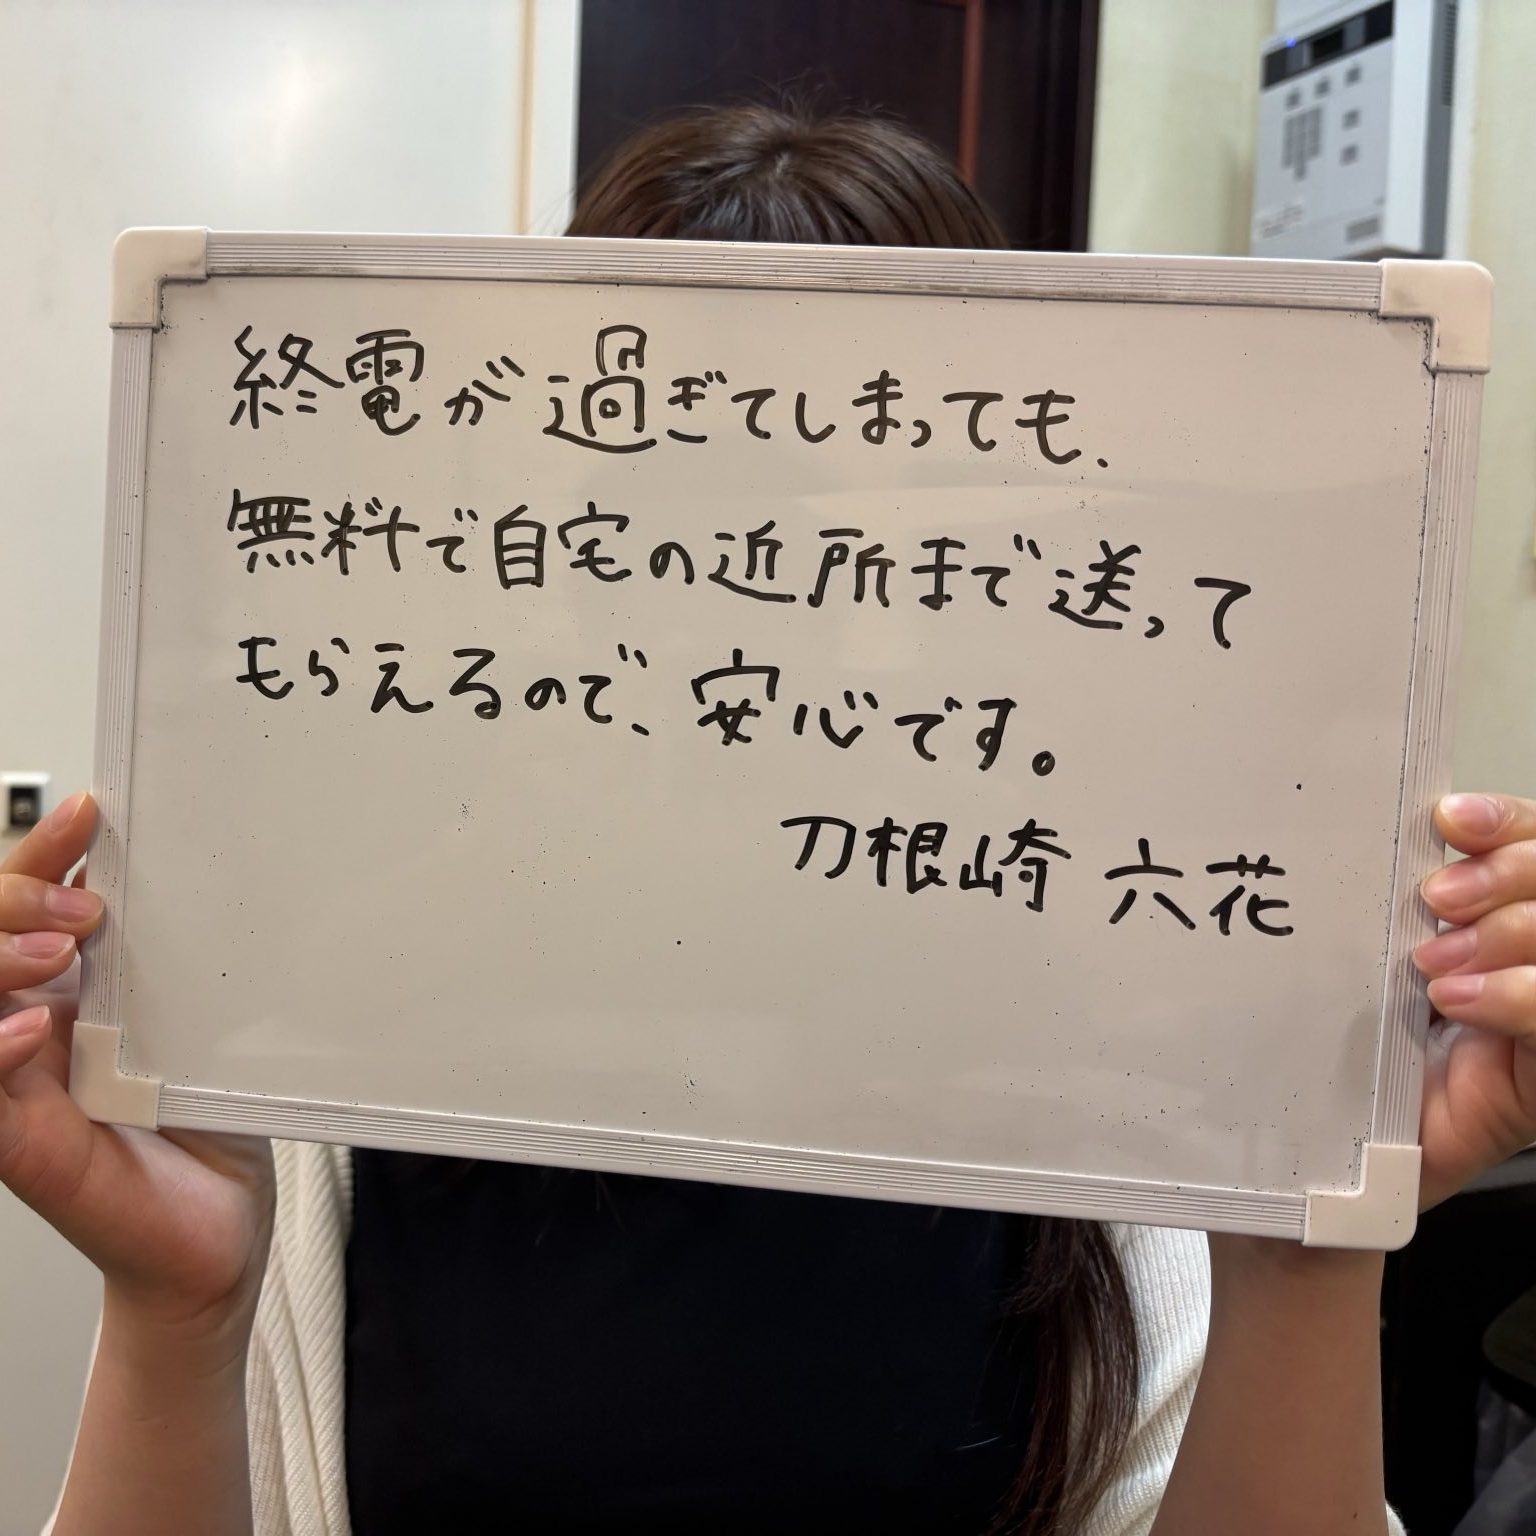 終電が過ぎてしまっても、
無料で自宅の近所まで送って
もらえるので、安心です。
刀根崎 六花